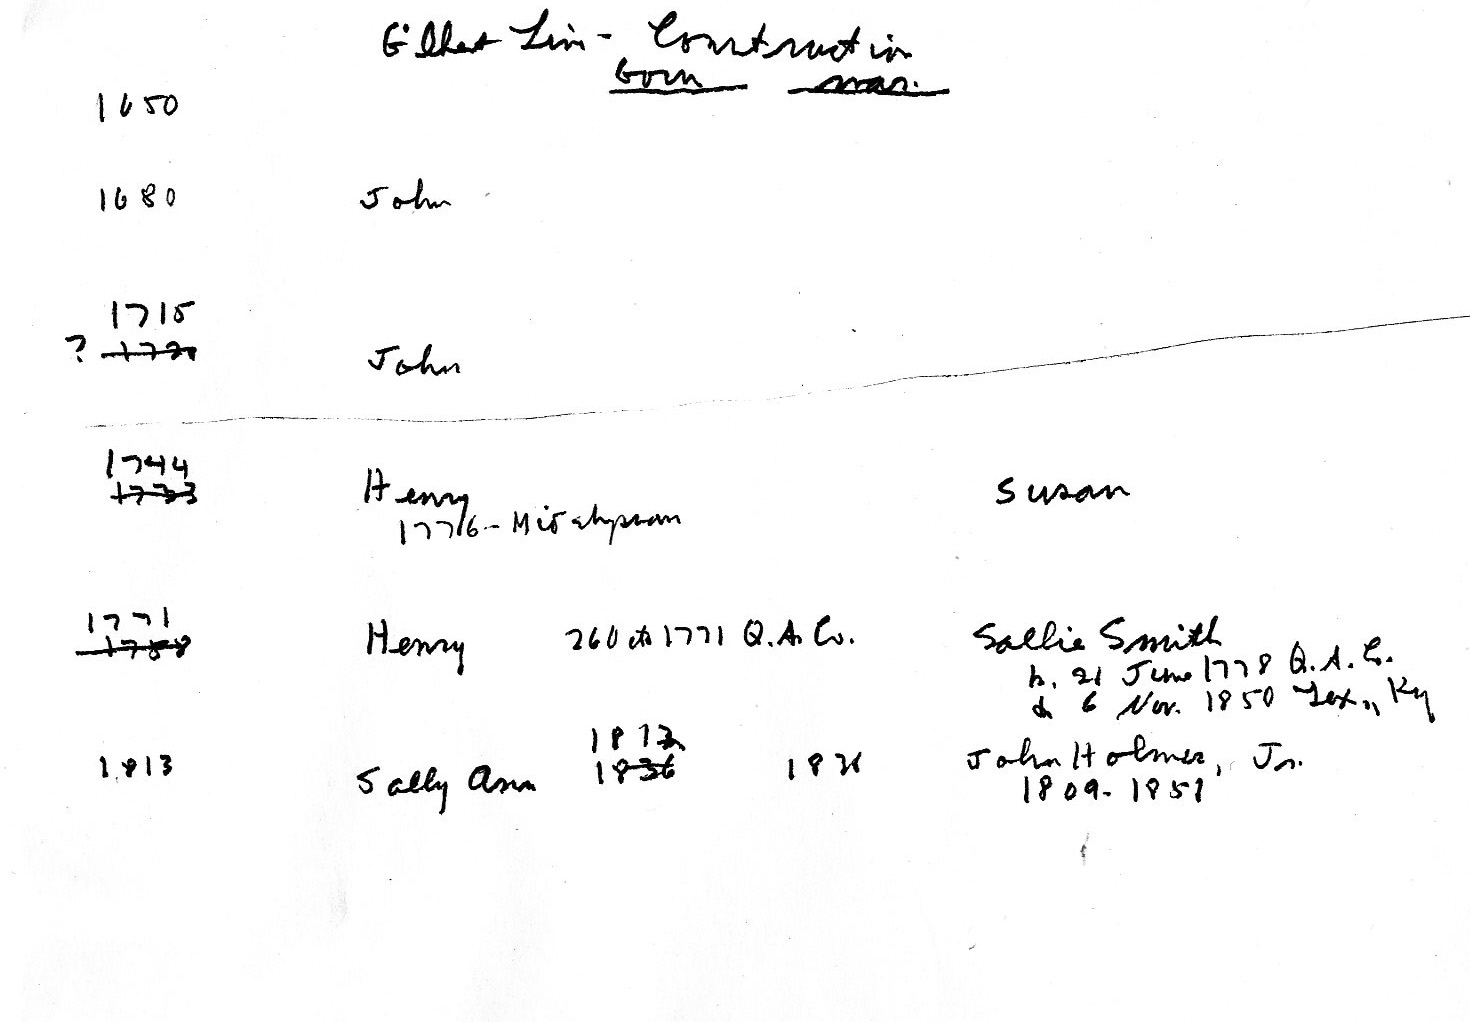 Line - Construction
born mar.
1650
1680 John
1715
? 1720 John
1744
1733 Henry Susan
1776 -
1771
1758 Henry 1771 Q.A. Co. Sallie Smith
b. 21 June 1778 Q.A. Co.
d 6 Nov. 1850 Lex., Ky
1813 Sally Ann 1836 John Holmes, Jr.
1809-